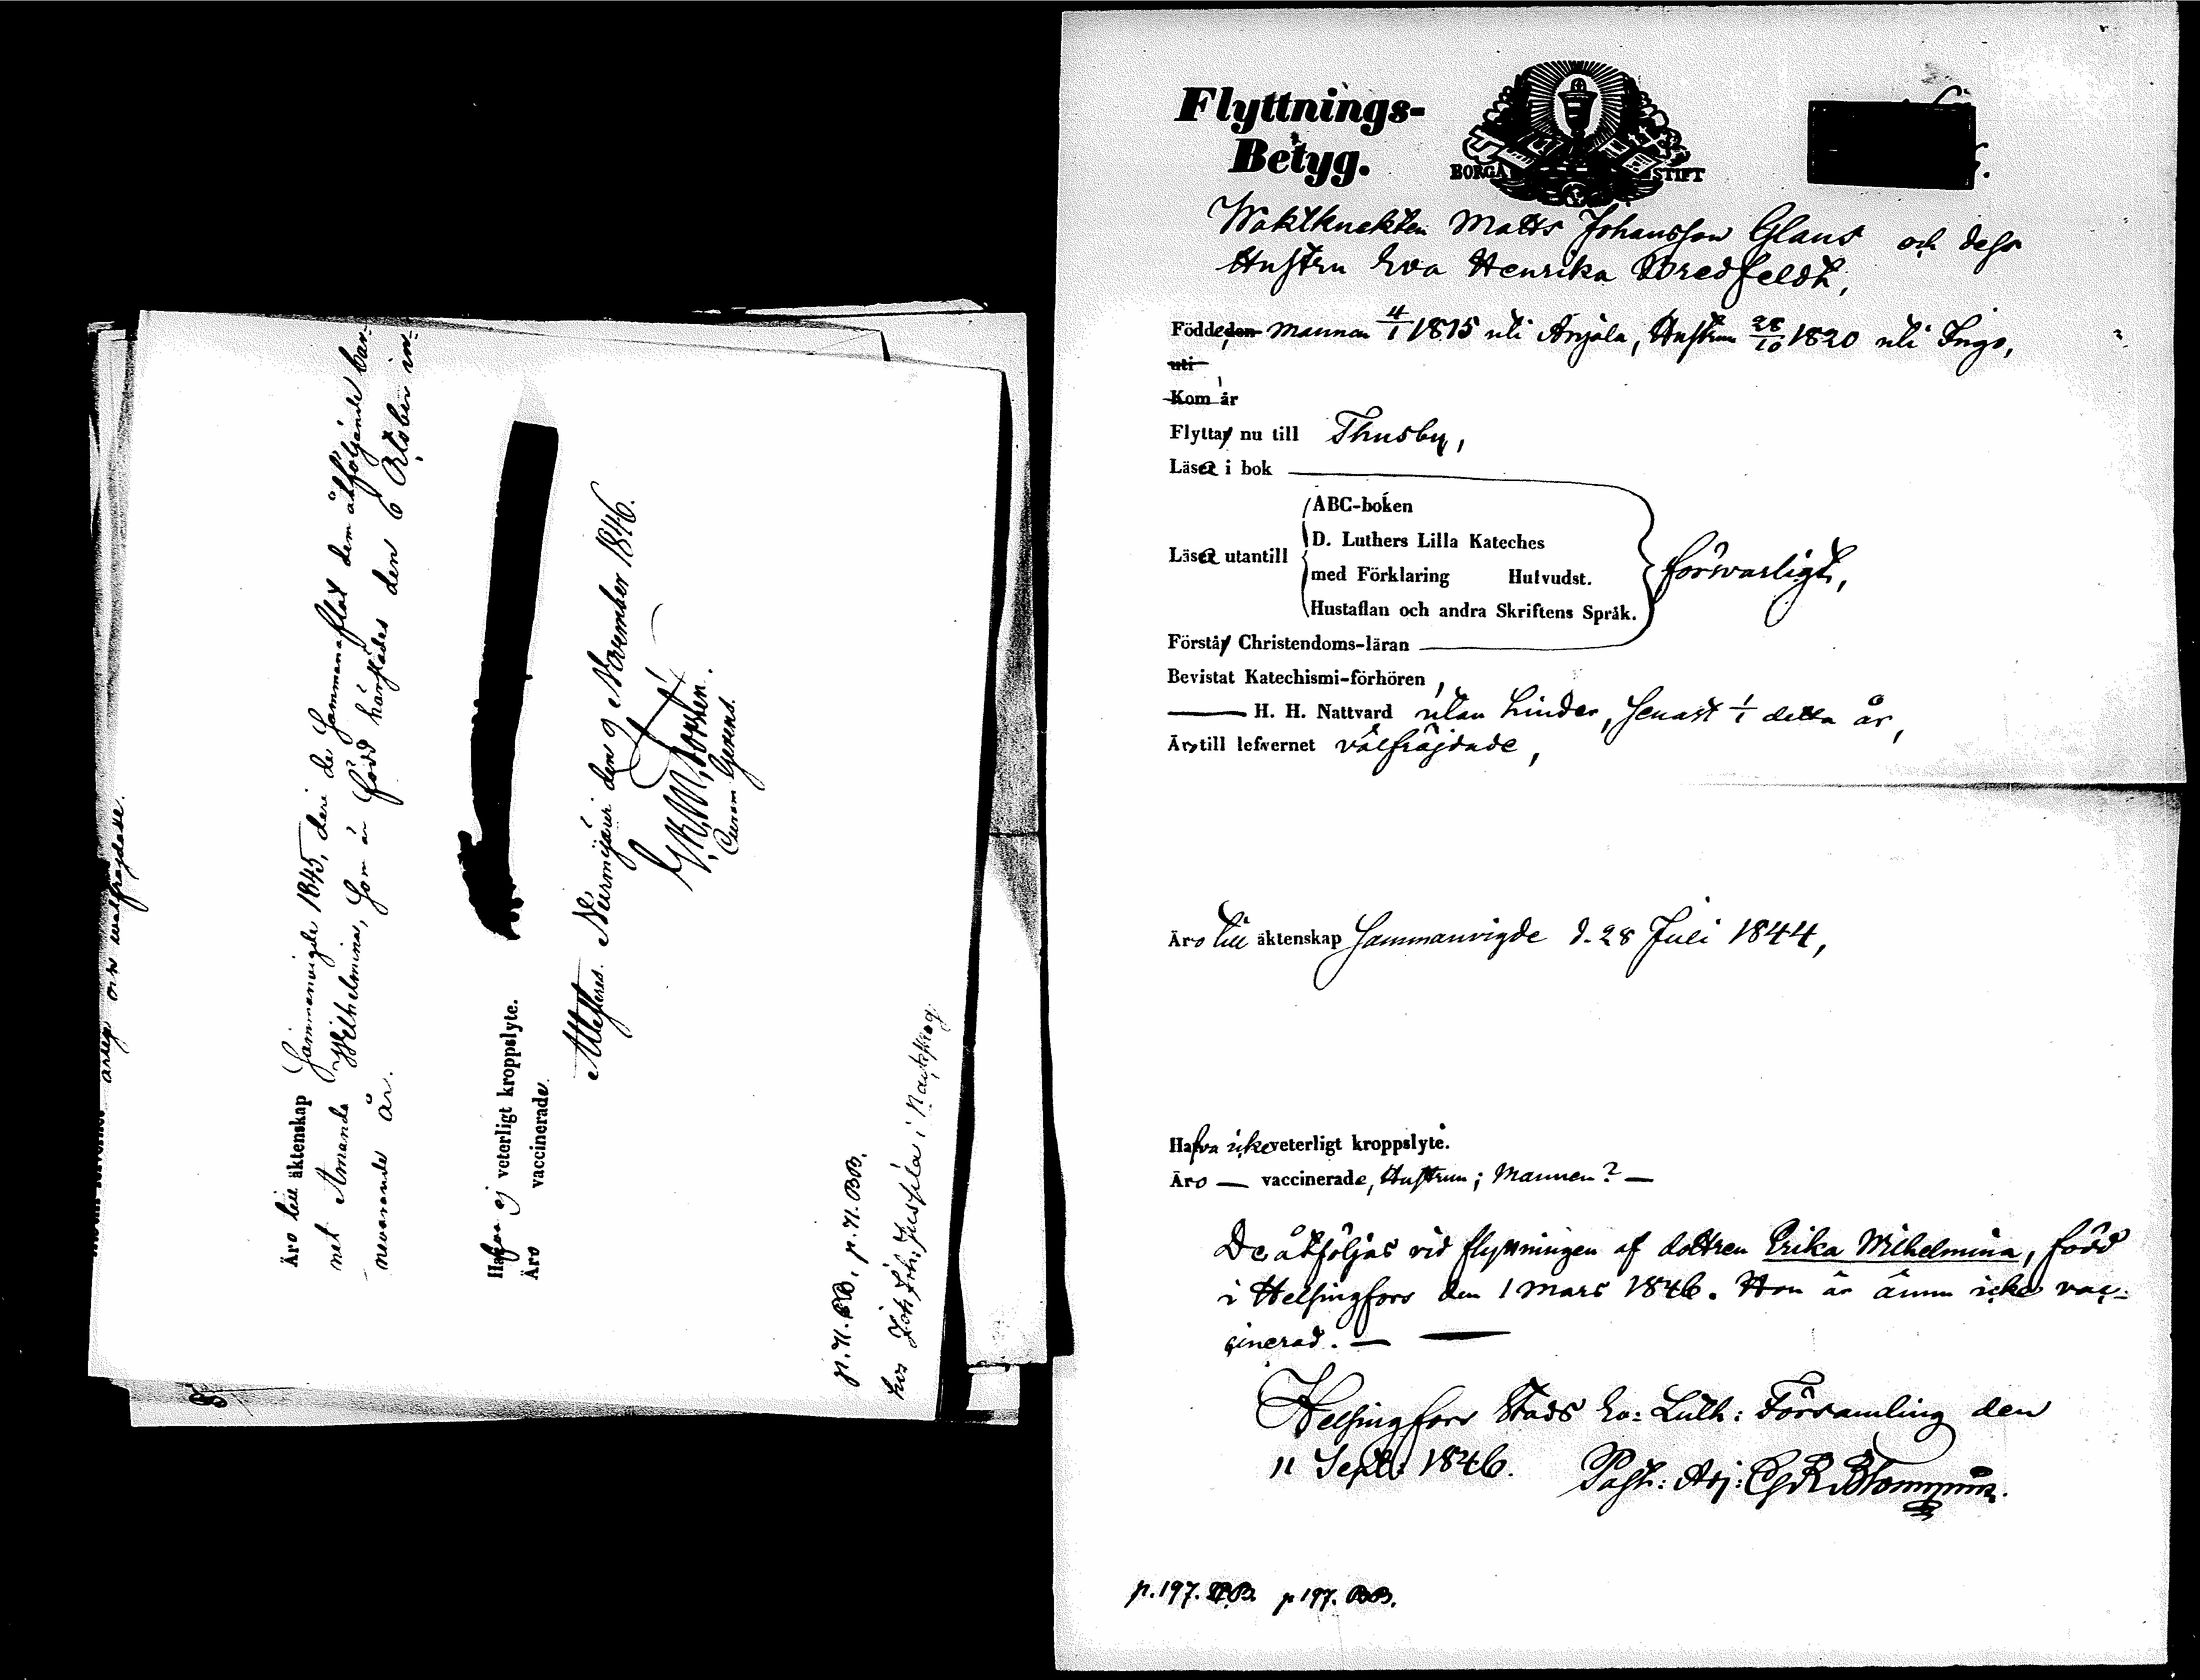 arlig och wälfrägdade.
Äro till äktenskap Sammanvigde 1845, deri de Sammanaflat dem åtföljande bar-
net Amanda Wilhelmina, som är född härstädes den 6 Oktober in-
nevarande år.
Hafva ej veterligt kroppslyte.
Äro vaccinerade.
Attesteras. Nurmijärvi den 9 November 1846.
Curam Gerens.
p. 71. BB. p. 71. BB.
hos Joh: Joh: Jussila i Nackskog
Flyttnings-
Betyg.
BORGÅ STIFT
Waktknekten Matts Johansson Glans och dess
Hustru Eva Henrika Bredfeldt,
Födde, den mannen 4/1 1815 uti Anjala, Hustrun 28/10 1820 uti Ingo,
uti
Kom år
Flytta nu till Thusby,
Läsa i bok
ABC-boken
D. Luthers Lilla Kateches
Läsa utantill
med Förklaring Hufvudst.
försvarligt,
Hustaflan och andra Skriftens Språk.
Förstå Christendoms-läran
Bevistat Katechismi-förhören,
H. H. Nattvard utan hinder, senast 1/1 detta år,
Äro till lefvernet välfräjdade,
Äro till äktenskap Sammanvigde d. 28 Juli 1844,
Hafva icke veterligt kroppslyte.
Äro — vaccinerade, Hustrun; Mannen? —
De åtföljas vid flyttningen af dottren Erika Wilhelmina, född
i Helsingfors den 1 Mars 1846. Hon är ännu icke vac-
cinerad. —
Helsingfors Stads Ev: Luth: Församling den
11 Sept: 1846. Past: Adj:
p. 197. BB. p 197. BB.